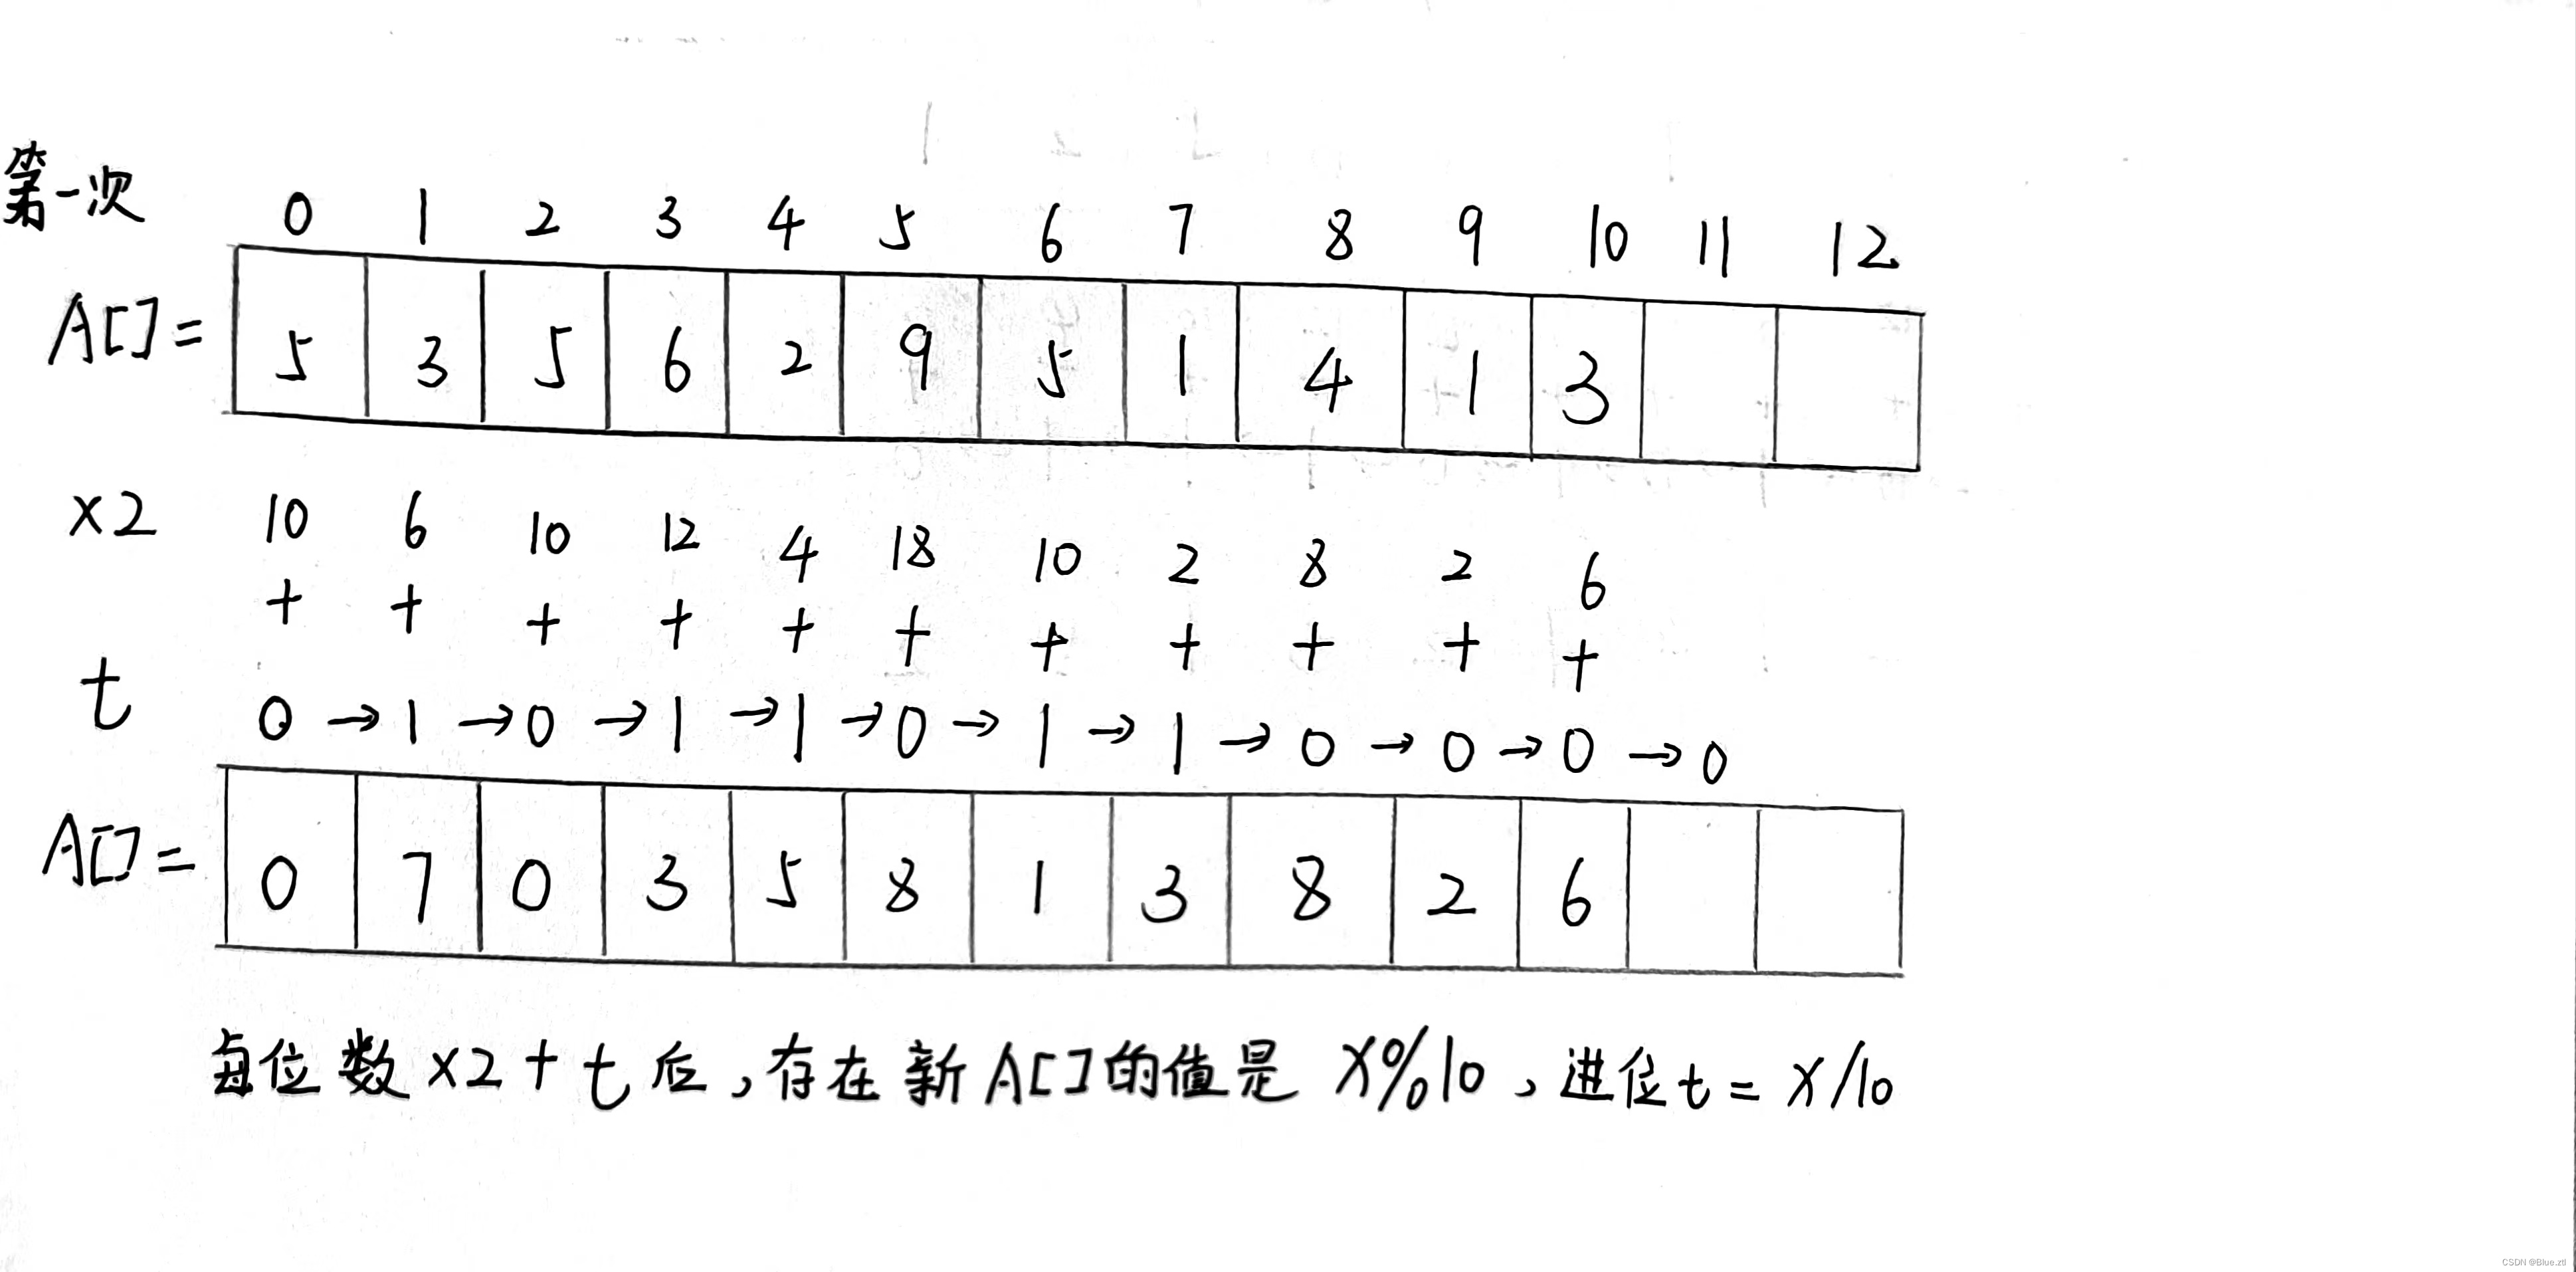 第一次
0 1 2 3 4 5 6 7 8 9 10 11 12
A[]= 5 3 5 6 2 9 5 1 4 1 3
×2 10 6 10 12 4 18 10 2 8 2 6
+ + + + + + + + + + +
t 0 →1 →0 →1 →1 →0 → 1 → 1 → 0 → 0 → 0 → 0
A[]= 0 7 0 3 5 8 1 3 8 2 6
每位数×2+t后,存在新A[]的值是 X%10,进位t= X/10
CSDN @Blue.ztl